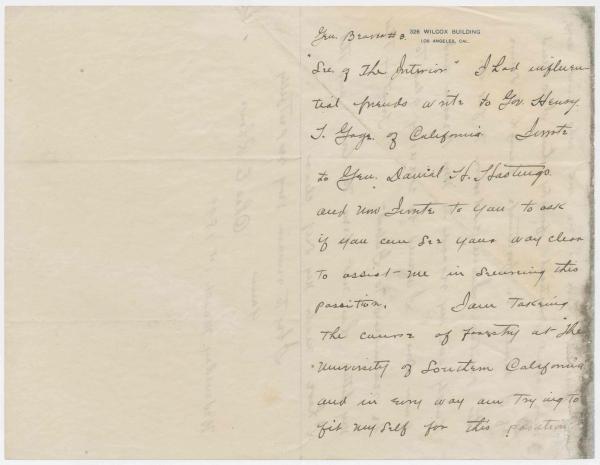 Gen. Beaver #3.
328 WILCOX BUILDING
LOS ANGELES, CAL.
"Sec. of The Interior" I had influen-
tial friends write to Gov. Henry
T. Gage. of California I wrote
to Gen. Daniel H. Hastings
and now I write to you to ask
if you can see your way clear
to assist me in securing this
position. I am takeing
the course of forestry at "The
University of Southern California
and in every way am trying to
fit myself for this position